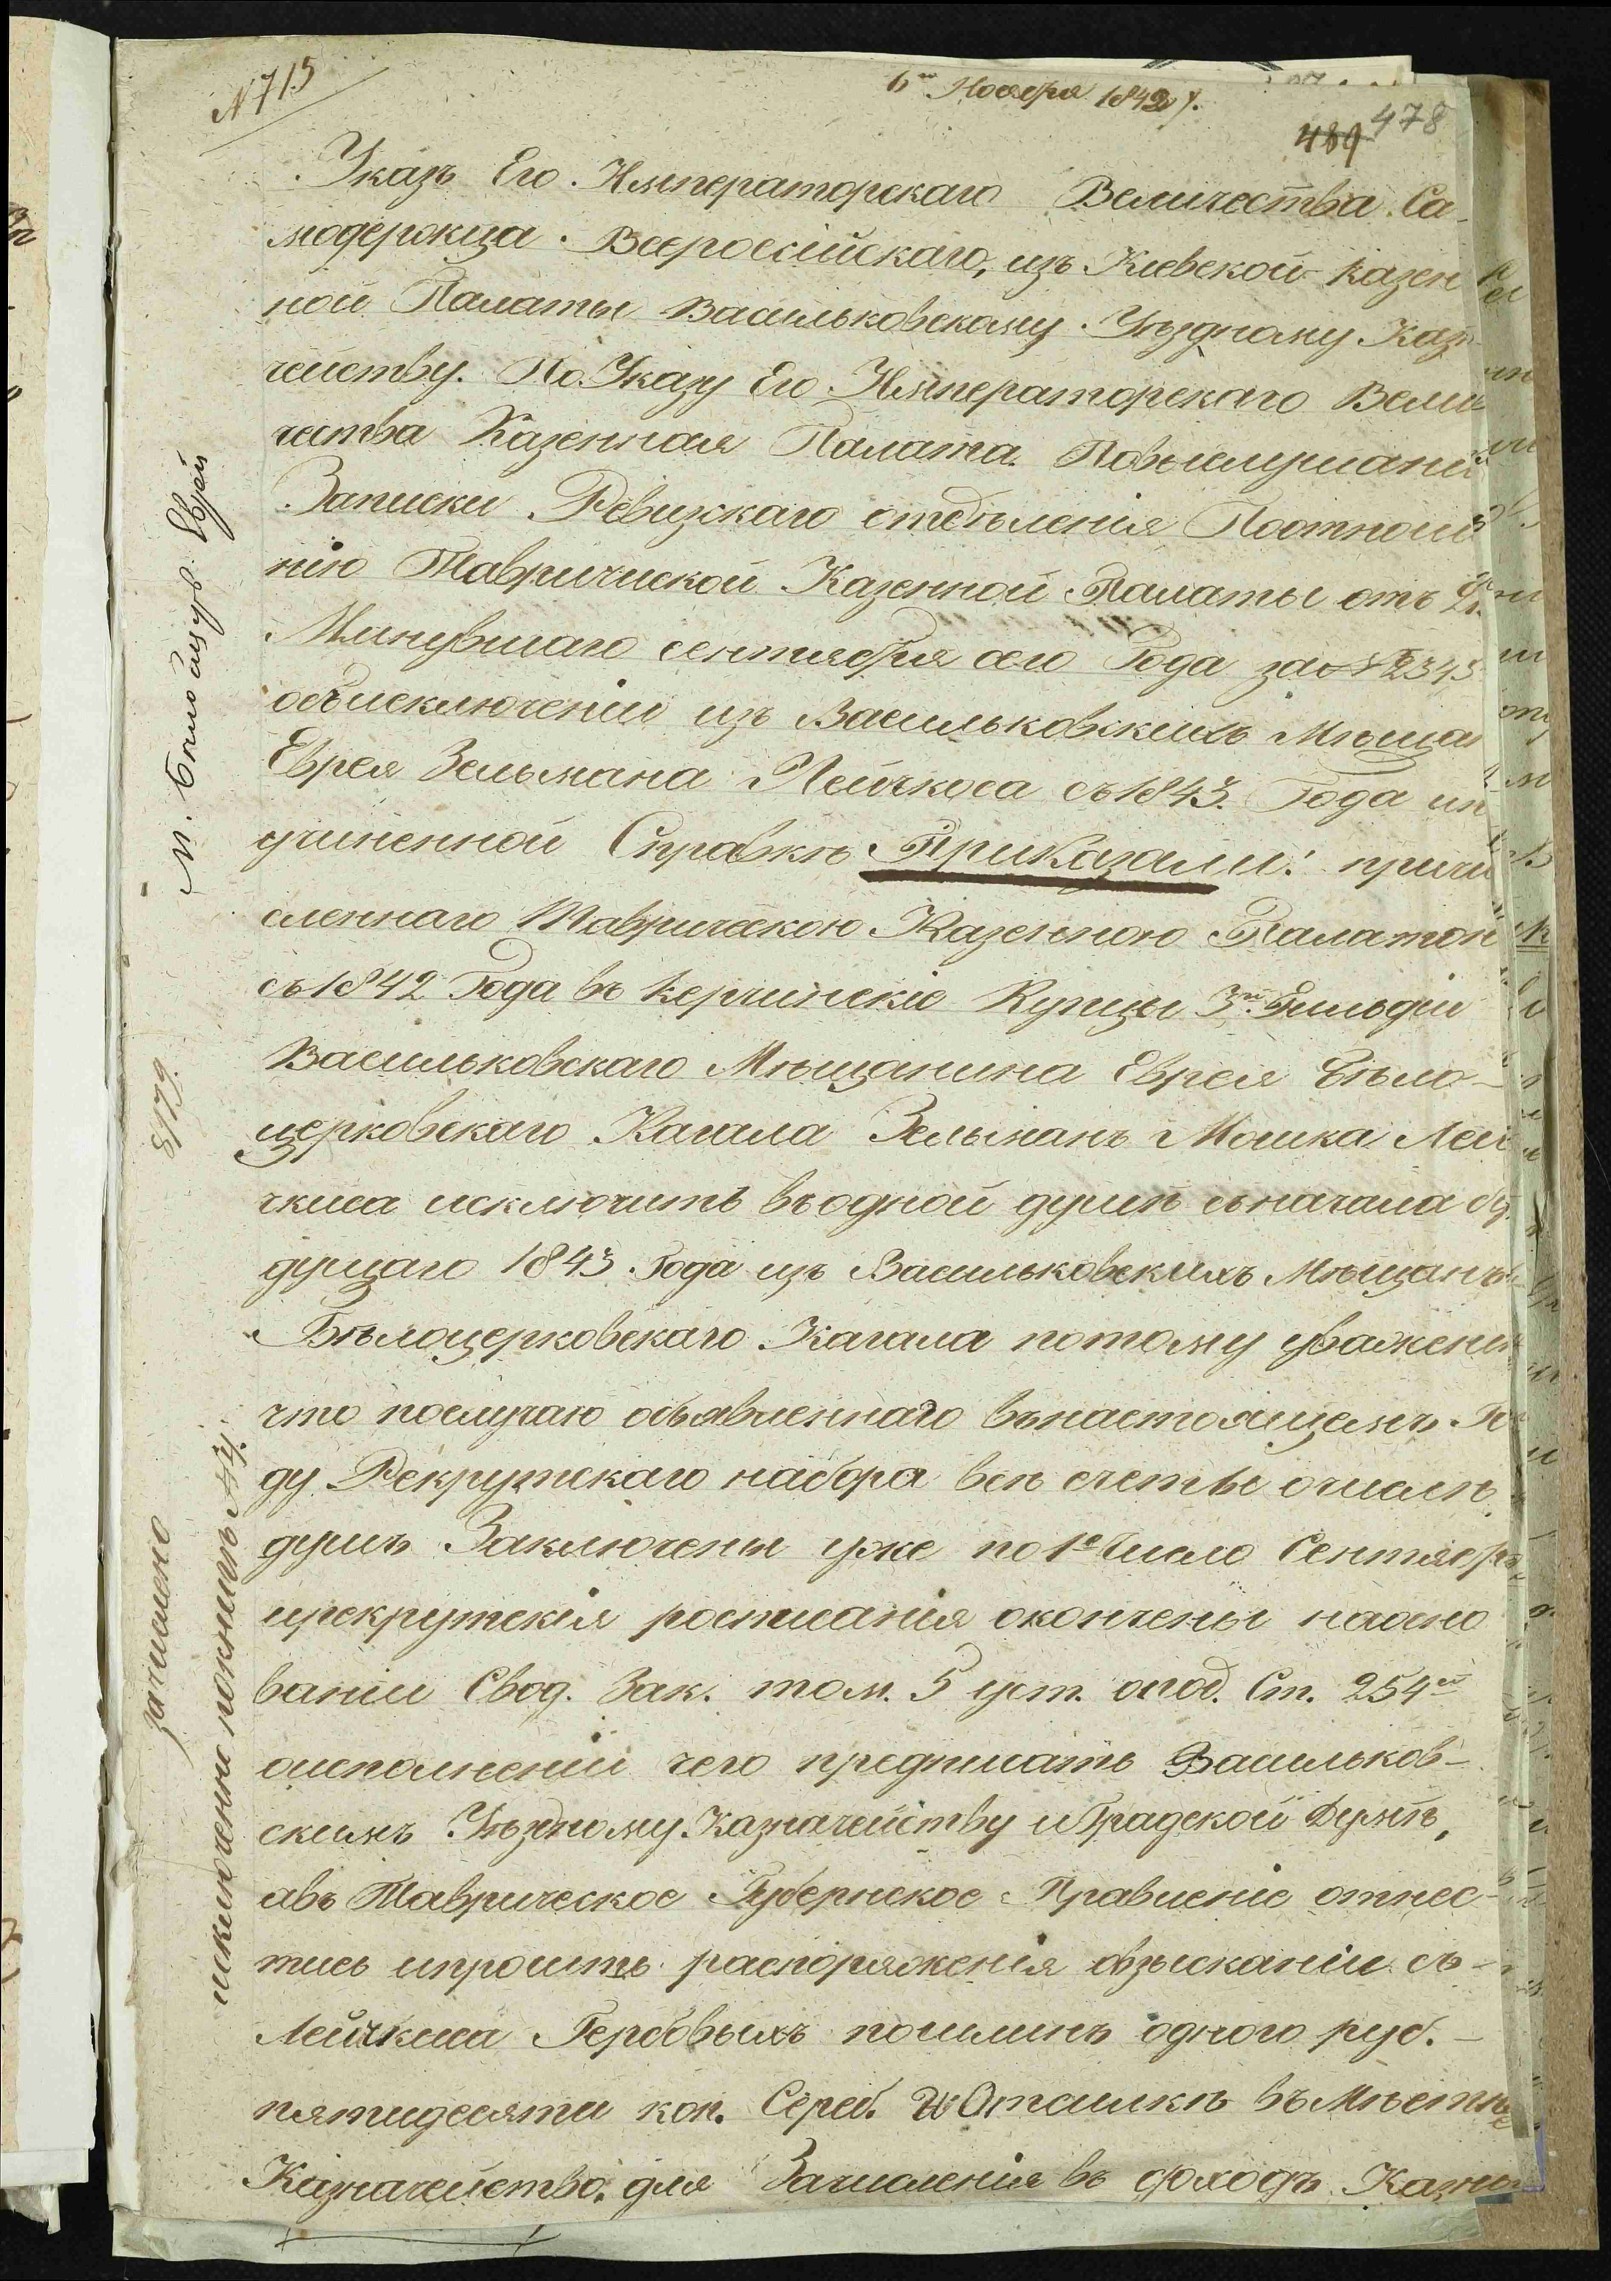 N 715
6го Ноября 1842 г.
489 478
Указъ Его Императорскаго Величества Са-
модержца Всероссійскаго, изъ Кіевской казен
ной Палаты Васильковскому Уѣздному Каз
чейству. По Указу Его Императорскаго Вели
чества Казенная Палата. Повыслушани
Записки Ревизскаго отдѣленія Поотноше
нію Тавричиской Казенной Палаты отъ
Минувшаго сентября сего Года за № 2345
объисключеніи изъ Васильковскихъ Мѣщан
Еврея Зельмана Лейчкоса съ 1843. Года ип
учиненной Справкѣ Приказали: причи
сленнаго Таврическою Казенною Палатою
съ 1842 Года въ Керчинскіе Купцы 3й Гильдіи
Васильковскаго Мѣщанина Еврея Бѣло-
церковскаго Кагала Зельманъ Мошка Лей
чкиса исключить водной душѣ сначала бу
дущаго 1843 Года изъ Васильковскихъ Мѣщанъ
Бѣлоцерковскаго Кагала потому уважени
что послучаю объявленнаго внастоящемъ Го
ду Рекрутскаго набора всѣ счеты очислѣ
душъ Заключены уже по 1е Число Сентября
ирекрутскія росписанія окончены наосно
ваніи Свод. Зак. том. 5 уст. опод. Ст. 254й
оисполненіи чего предписать Васильков-
скимъ Уѣздному Казначейству иГрадской Думѣ,
авъ Таврическое Губернское Правленіе отнес-
тись ипросить распоряженія овзысканіи съ-
Лейчкиса Гербовыхъ пошлинъ одного руб.-
пятидесяти коп. Сереб. и Отсылкѣ въ Мѣстное
Казначейство, для Зачисленія въ доходъ Казны
м. Бѣлоцерк. Еврей
8179.
зачислено
исключенно покнигѣ № 4.